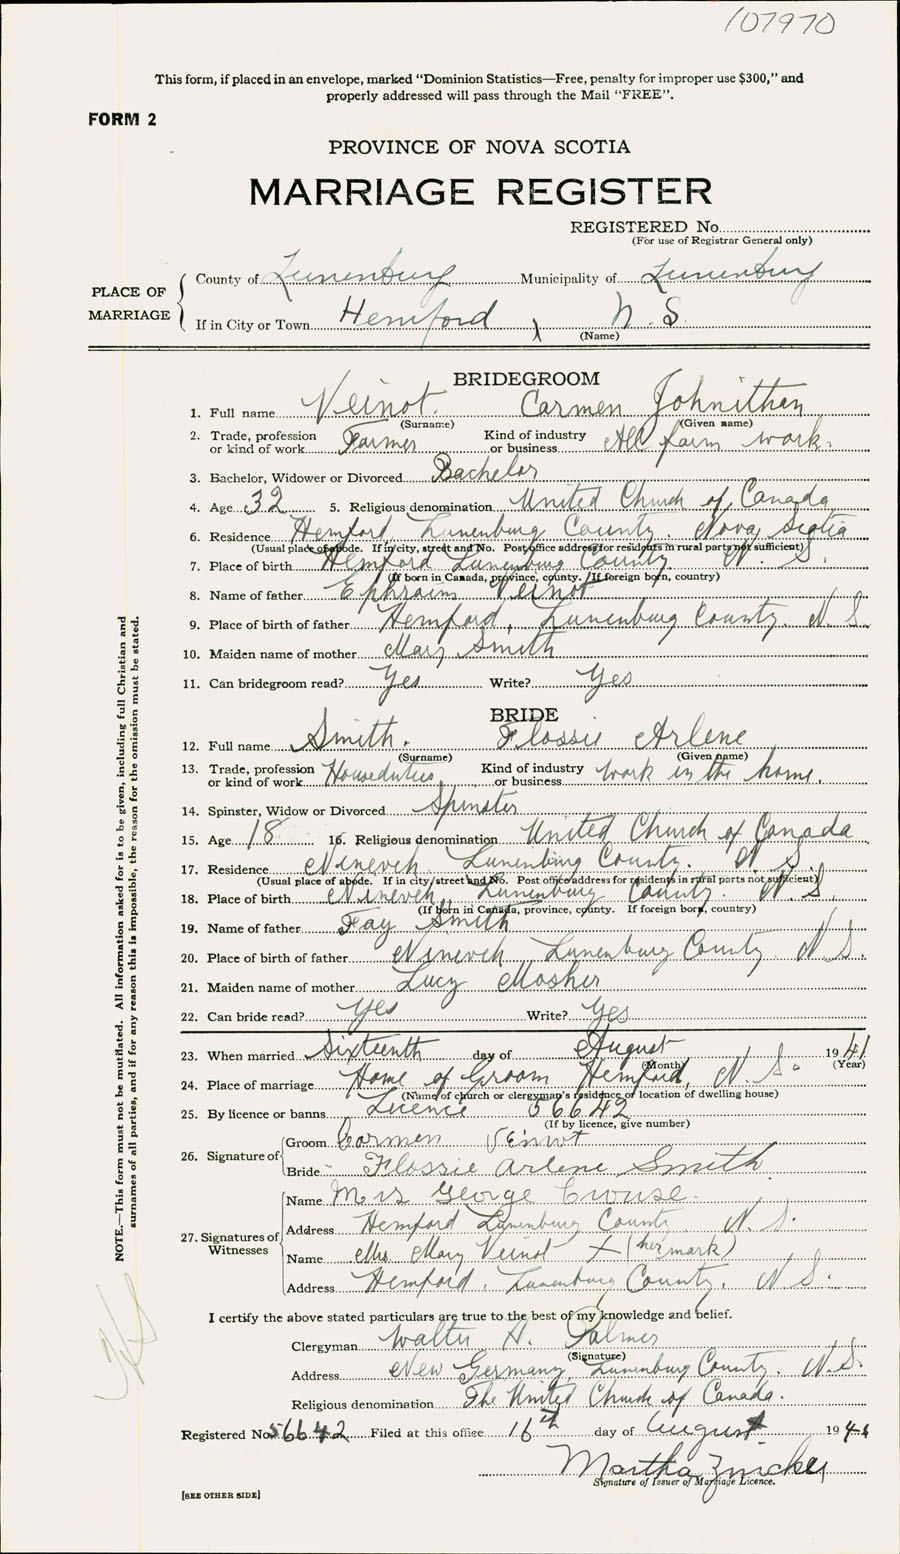 107970
This form, if placed in an envelope, marked “Dominion Statistics—Free, penalty for improper use $300,” and
properly addressed will pass through the Mail “FREE”.
FORM 2
PROVINCE OF NOVA SCOTIA
MARRIAGE REGISTER
REGISTERED No.
(For use of Registrar General only)
PLACE OF MARRIAGE
County of Lunenburg Municipality of Lunenburg
If in City or Town Hemford, N.S.
(Name)
BRIDEGROOM
1. Full name Veinot. Carmen Johnithan
(Surname) (Given name)
2. Trade, profession or kind of work Farmer Kind of industry or business All farm work.
3. Bachelor, Widower or Divorced Bachelor
4. Age 32 5. Religious denomination United Church of Canada
6. Residence Hemford, Lunenburg County. Nova Scotia
(Usual place of abode. If in city, street and No. Post office address for residents in rural parts not sufficient)
7. Place of birth Hemford Lunenburg County. N. S.
(If born in Canada, province, county. If foreign born, country)
8. Name of father Ephraim Veinot
9. Place of birth of father Hemford, Lunenburg County. N. S.
10. Maiden name of mother Mary Smith
11. Can bridegroom read? Yes Write? Yes
BRIDE
12. Full name Smith. Flossie Arlene
(Surname) (Given name)
13. Trade, profession or kind of work Houseduties Kind of industry or business Work in the home.
14. Spinster, Widow or Divorced Spinster
15. Age 18 16. Religious denomination United Church of Canada
17. Residence Nineveh. Lunenburg County. N. S.
(Usual place of abode. If in city, street and No. Post office address for residents in rural parts not sufficient)
18. Place of birth Nineveh, Lunenburg County. N. S.
(If born in Canada, province, county. If foreign born, country)
19. Name of father Fay Smith
20. Place of birth of father Nineveh Lunenburg County N. S.
21. Maiden name of mother Lucy Mosher
22. Can bride read? Yes Write? Yes
23. When married Sixteenth day of August 1941
(Month) (Year)
24. Place of marriage Home of Groom Hemford, N. S.
(Name of church or clergyman's residence or location of dwelling house)
25. By licence or banns Licence 56642
(If by licence, give number)
26. Signature of
Groom Carmen Veinot
Bride Flossie Arlene Smith
27. Signatures of Witnesses
Name Mrs George Crouse.
Address Hemford Lunenburg County, N. S.
Name Mrs. Mary Veinot X (her mark)
Address Hemford, Lunenburg County. N. S.
I certify the above stated particulars are true to the best of my knowledge and belief.
Clergyman Walter A. Palmer
(Signature)
Address New Germany, Lunenburg County. N.S.
Religious denomination The United Church of Canada.
Registered No. 56642 Filed at this office 16th day of August 1941
Martha Zwicker
Signature of Issuer of Marriage Licence.
[SEE OTHER SIDE]
NOTE.—This form must not be mutilated. All information asked for is to be given, including full Christian and
surnames of all parties, and if for any reason this is impossible, the reason for the omission must be stated.